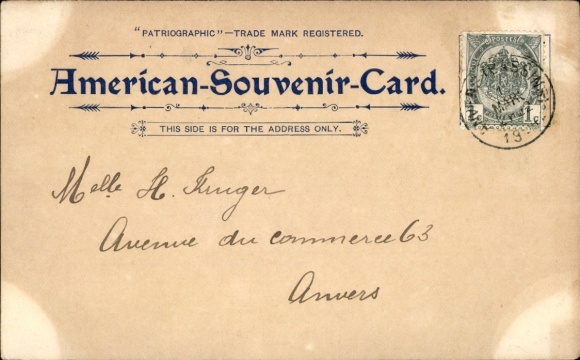 "PATRIOGRAPHIC"—TRADE MARK REGISTERED.
American-Souvenir-Card.
THIS SIDE IS FOR THE ADDRESS ONLY.
POSTES
1c
19
Melle H. Kruger
Avenue du commerce 63
Anvers